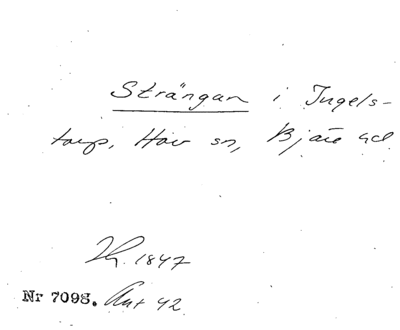 Strängan i Ingels-
torp, Hov sn, Bjäre hd
1847
Nr 7098. Ant 42